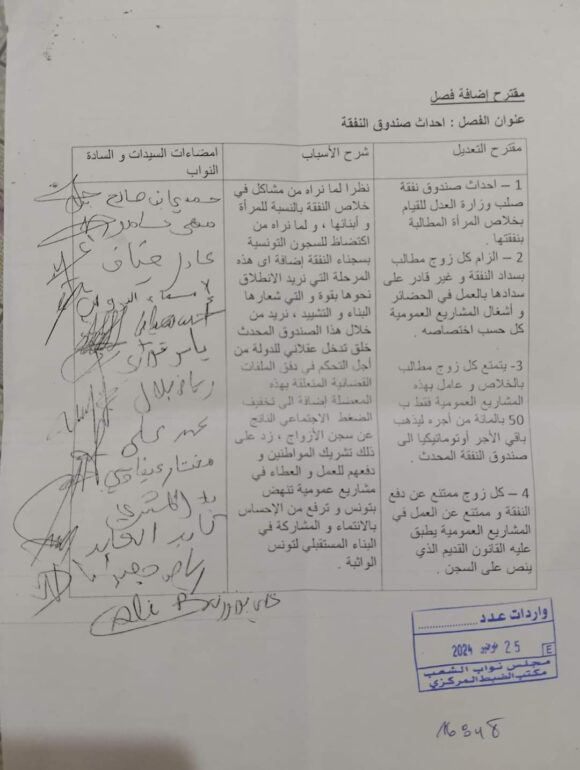 مقترح إضافة فصل
عنوان الفصل : احداث صندوق النفقة
مقترح التعديل
1 – احداث صندوق نفقة
صلب وزارة العدل للقيام
بخلاص المرأة المطالبة
بنفقتها .
2 – الزام كل زوج مطالب
بسداد النفقة و غير قادر على
سدادها بالعمل في الحضائر
و أشغال المشاريع العمومية
كل حسب اختصاصه .
3- يتمتع كل زوج مطالب
بالخلاص و عامل بهذه
المشاريع العمومية فقط ب
50 بالمائة من أجره ليذهب
باقي الأجر أوتوماتيكيا الى
صندوق النفقة المحدث .
4 – كل زوج ممتنع عن دفع
النفقة و ممتنع عن العمل في
المشاريع العمومية يطبق
عليه القانون القديم الذي
ينص على السجن .
شرح الأسباب
نظرا لما نراه من مشاكل في
خلاص النفقة بالنسبة للمرأة
و أبنائها ، و لما نراه من
اكتضاظ للسجون التونسية
بسجناء النفقة إضافة اى هذه
المرحلة التي نريد الانطلاق
نحوها بقوة و التي شعارها
البناء و التشييد ، نريد من
خلال هذا الصندوق المحدث
خلق تدخل عقلاني للدولة من
أجل التحكم في دفق الملفات
القضائية المتعلقة بهذه
المعضلة إضافة الى تخفيف
الضغط الاجتماعي الناتج
عن سجن الأزواج ، زد على
ذلك تشريك المواطنين و
دفعهم للعمل و العطاء في
مشاريع عمومية تنهض
بتونس و ترفع من الإحساس
بالانتماء و المشاركة في
البناء المستقبلي لتونس
الواثبة .
امضاءات السيدات و السادة
النواب
حمدي بن صالح
عادل ضياف
ياسر قوراري
Ali
واردات عدد
25 نوفمبر 2024
E
مجلس نواب الشعب
مكتب الضبط المركزي